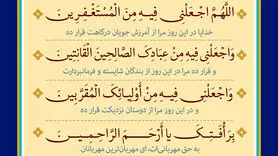 اللَّهُمَّ اجْعَلْنِي فِيهِ مِنَ الْمُسْتَغْفِرِينَ
خدایا در این روز مرا از آمرزش جویان درگاهت قرار ده
وَاجْعَلْنِي فِيهِ مِنْ عِبَادِكَ الصَّالِحِينَ الْقَانِتِينَ
و قرار ده مرا در این روز از بندگان شایسته و فرمانبردارت
وَاجْعَلْنِي فِيهِ مِنْ أَوْلِيَائِكَ الْمُقَرَّبِينَ
و قرار ده مرا در این روز از دوستان نزدیکت قرار ده
بِرَأْفَتِكَ يَا أَرْحَمَ الرَّاحِمِينَ
به حق مهربانی‌ات، ای مهربان‌ترین مهربانان.